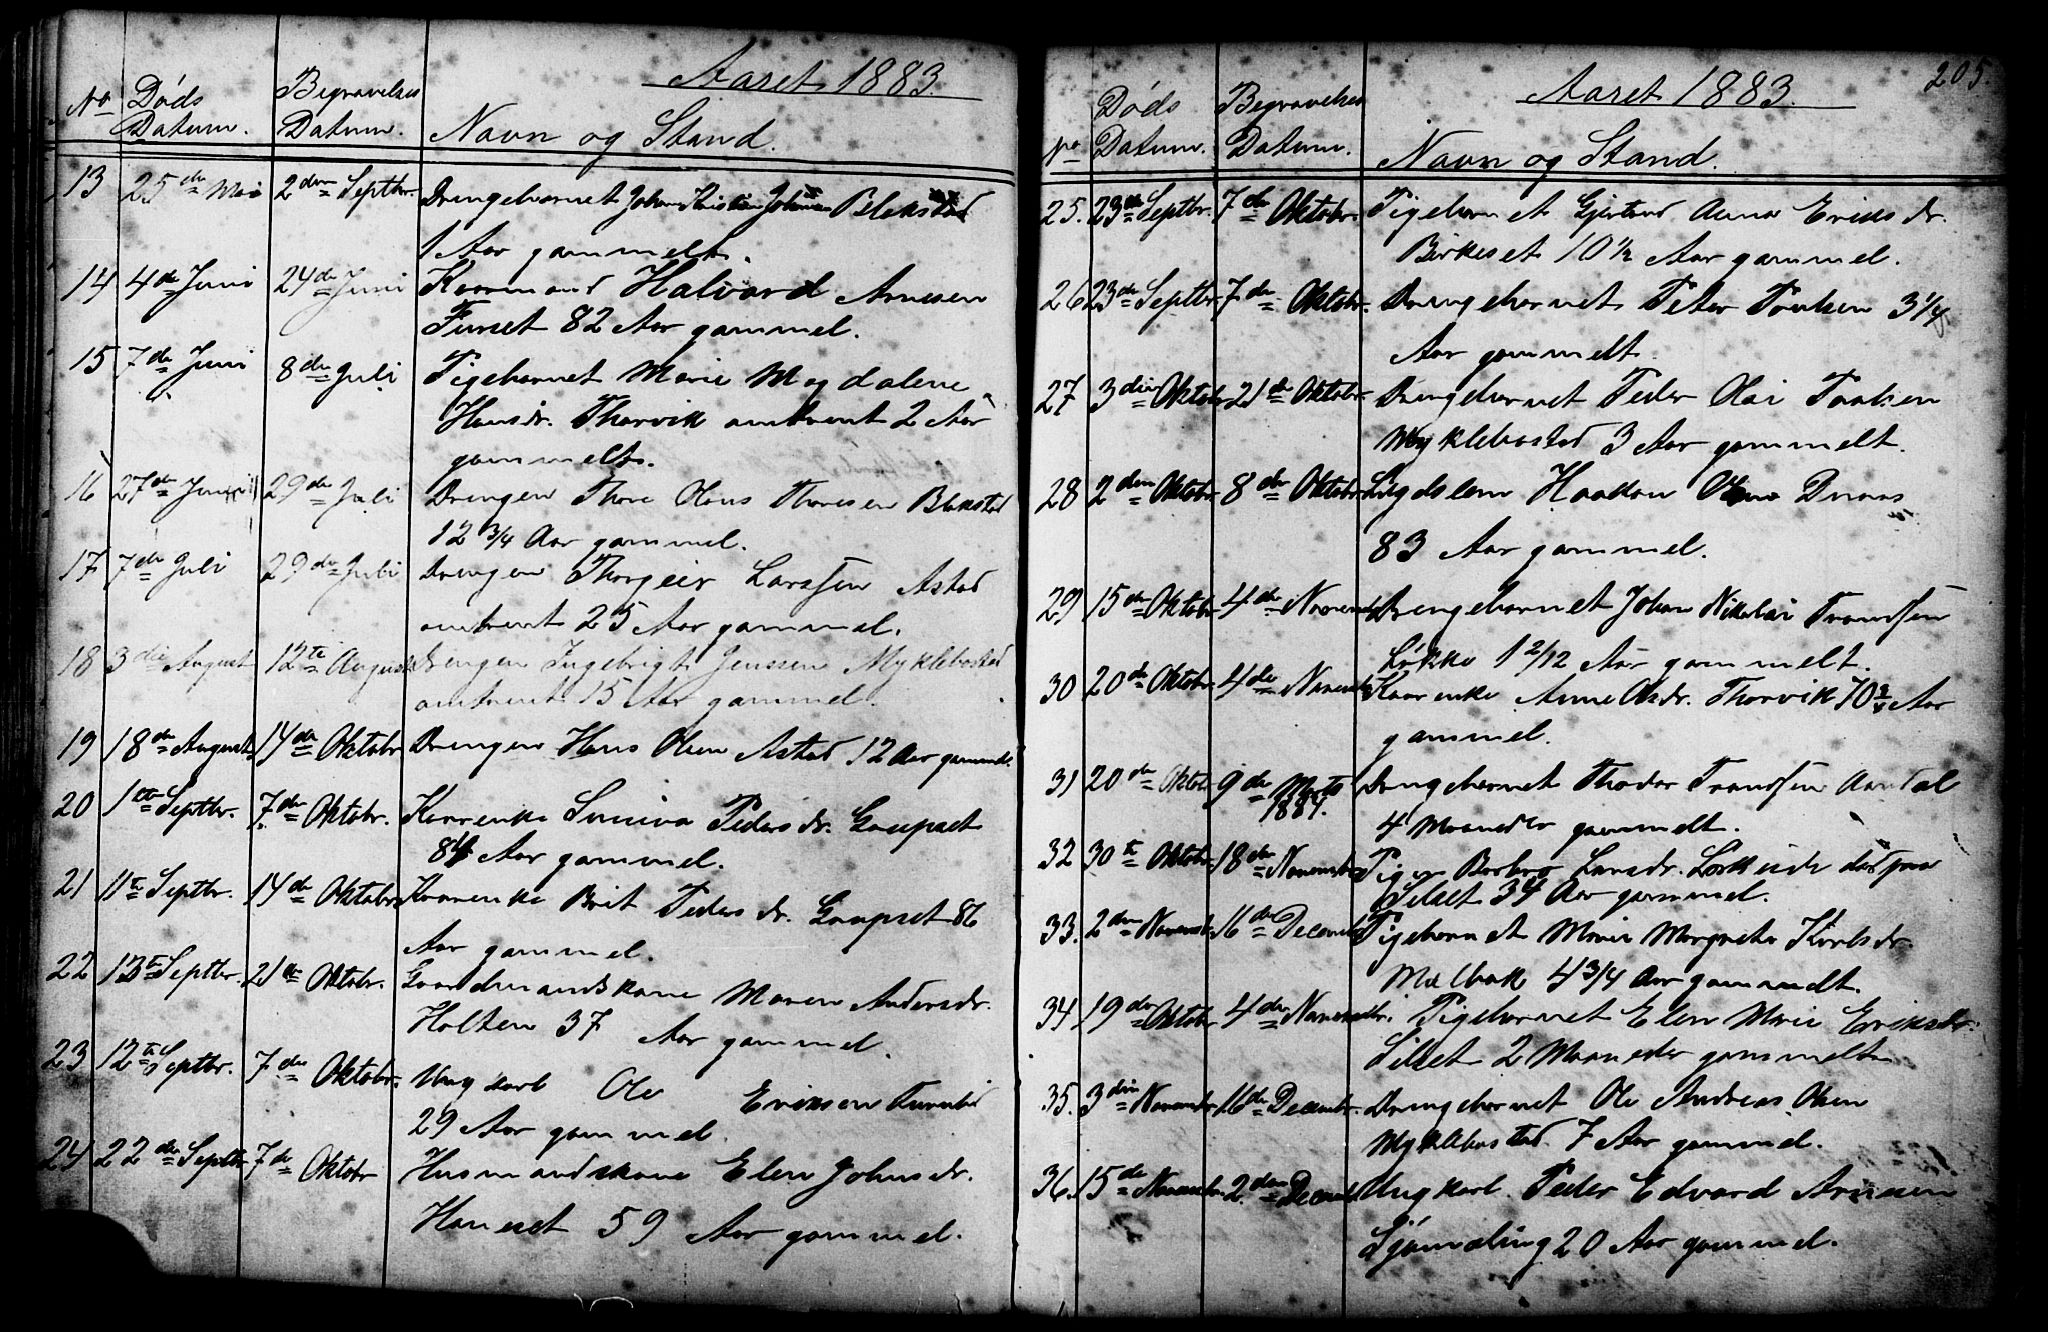 Aaret 1883.
No Døds Datum. Begravelses Datum. Navn og Stand.
13 25de Mai 2den Septbr. Drengebarnet Johan Kristian Johnsen Blekstad
1 Aar gammelt.
14 4de Juni 24de Juni Kaarmand Halvard Arnesen
Furset 82 Aar gammel.
15 7de Juni 8de Juli Pigebarnet Marie Magdalene
Hansdr. Thorvik omtrent 2 Aar
gammelt.
16 27de Juni 29de Juli Drengen Thore Hans Thoresen Blekstad
12 3/4 Aar gammel.
17 7de Juli 29de Juli Drengen Thorgeir Larssen Astad
omtrent 25 Aar gammel.
18 3die August 12te August Drengen Ingebrigt Jenssen Myklebostad
omtrent 15 Aar gammel.
19 18de August 14de Oktobr. Drengen Hans Olsen Astad 12 Aar gammel.
20 1ste Septbr. 7de Oktobr. Kaarenke Siniva Pedersdr. Gaupset
84 Aar gammel.
21 11te Septbr. 14de Oktobr. Kaarenke Brit Pedersdr. Gaupset 86
Aar gammel.
22 12te Septbr. 21de Oktobr. Gaardmandskone Maren Andersdr.
Holten 37 Aar gammel.
23 12te Septbr. 7de Oktobr. Ungkarl Ole Eriksen
29 Aar gammel.
24 22de Septbr. 7de Oktobr Husmandskone Elen Johnsdr.
Hanset 59 Aar gammel.
205.
Aaret 1883.
No Døds Datum. Begravelses Datum. Navn og Stand.
25. 23de Septbr. 7de Oktobr. Pigebarnet Gjertrud Anna Eriksdr.
Birkeset 10 1/2 Aar gammel.
26 23de Septbr. 7de Oktobr. Drengebarnet Peter Poulsen 3 1/4
Aar gammelt.
27 3die Oktobr 21de Oktobr. Drengebarnet Peder Olai Paulsen
Myklebostad 3 Aar gammelt.
28 2den Oktobr 8de Oktobr. Lægdslem Haakon
83 Aar gammel.
29 15de Oktobr 4de Novembr Drengebarnet Johan Nikolai Trondsen
Løkke 1 2/12 Aar gammelt.
30 20de Oktobr. 4de Novembr Kaarenke Anne Olsdr. Thorvik 70 3/4 Aar
gammel.
31 20de Oktobr 9de Marts 1884. Drengebarnet Thodor Trondsen Aandal
4 Maaneder gammelt.
32 30te Oktobr. 18de Novembr Pigen Barbro Larsdr. død paa
Silset 34 Aar gammel.
33. 2den Novembr. 16de Decembr Pigebarnet Marie Margrete Karlsdr.
Mælbak 4 3/4 Aar gammelt.
34 19de Oktobr 4de Novembr. Pigebarnet Elen Marie Eriksdr.
Silset 2 Maaneder gammelt
35. 3die Novembr 16de Decembr. Drengebarnet Ole Andreas Olsen
Myklebostad 7 Aar gammel.
36. 15de Novembr 2den Decembr Ungkarl Peder Edvard Arnesen
Gjømeling 20 Aar gammel.